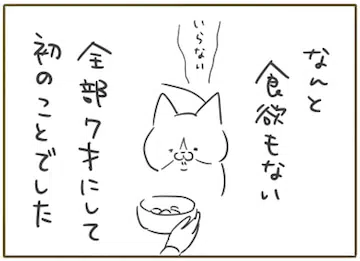 なんと
食欲もない
いらない
全部ワオにして
初のことでした